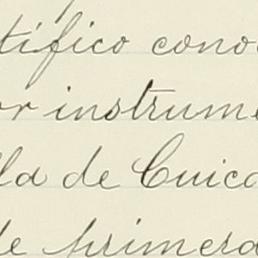 tífico cono
or instrume
lla de Cuica
de primera